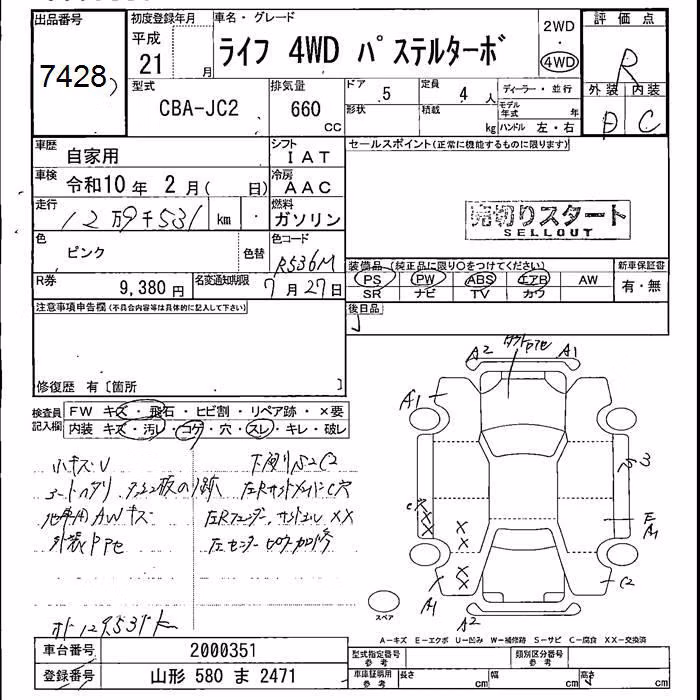 出品番号
7428
初度登録年月
平成
21 月
車名・グレード
ライフ 4WD パステルターボ
2WD
4WD
評価点
R
外装 内装
D C
型式
CBA-JC2
排気量
660 CC
ドア 5
定員 4 人
ディーラー・並行
形状
積載 kg
モデル年式 年
ハンドル 左・右
車歴 自家用
シフト IAT
セールスポイント(正常に機能するものに限ります)
車検 令和10年 2月( 日)
冷房 AAC
走行 12万9千531 km
燃料 ガソリン
売切りスタート
SELLOUT
色 ピンク
色替
色コード R536M
装備品 (純正品に限り○をつけてください)
新車保証書
PS PW ABS エアB AW
有・無
SR ナビ TV カワ
R券 9,380円
名変通知期限 7月27日
後日品
注意事項申告欄(不具合内容等は具体的に記入して下さい)
修復歴 有〔箇所 〕
検査員記入欄
FW キズ・飛石・ヒビ割・リペア跡・×要
内装 キズ・汚レ・コゲ・穴・スレ・キレ・破レ
小キズU
下廻りS2C2
AWキズ
××
A2 A1
A1
3
E
A1
C2
A1
A2
スペア
A-キズ E-エクボ U-凹み W-補修跡 S-サビ C-腐食 XX-交換済
車台番号 2000351
登録番号 山形 580 ま 2471
型式指定番号 参考
類別区分番号 参考
車庫証明用 参考
長さ cm 幅 cm 高さ cm